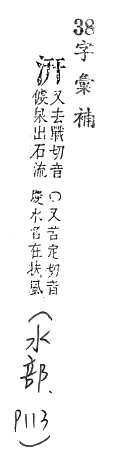 38字彙補
汧
又去切音
泉出石流
〇又苦定切音
慶水名在扶風
(水部, P113)